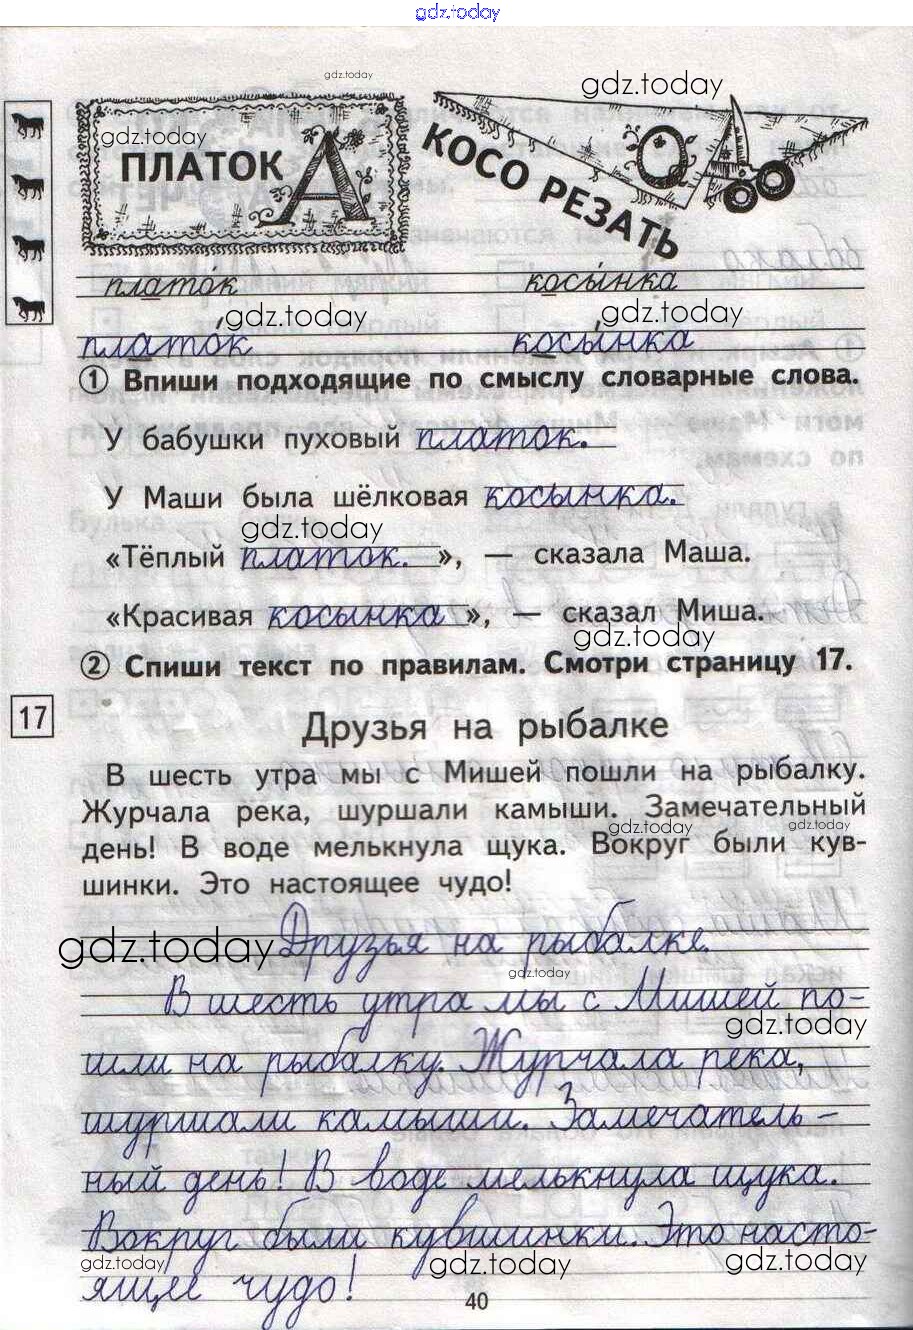 gdz.today
gdz.today
gdz.today
gdz.today
ПЛАТОК А
КОСО РЕЗАТЬ
О
платóк
косы́нка
gdz.today
gdz.today
платóк
косы́нка
① Впиши подходящие по смыслу словарные слова.
У бабушки пуховый платок.
У Маши была шёлковая косынка.
gdz.today
«Тёплый платок. », — сказала Маша.
«Красивая косынка », — сказал Миша.
gdz.today
② Спиши текст по правилам. Смотри страницу 17.
17
Друзья на рыбалке
В шесть утра мы с Мишей пошли на рыбалку.
Журчала река, шуршали камыши. Замечательный
gdz.today
gdz.today
день! В воде мелькнула щука. Вокруг были кув-
шинки. Это настоящее чудо!
gdz.today
Друзья на рыбалке.
gdz.today
В шесть утра мы с Мишей по-
gdz.today
шли на рыбалку. Журчала река,
шуршали камыши. Замечатель-
ный день! В воде мелькнула щука.
Вокруг были кувшинки. Это насто-
gdz.today
gdz.today
gdz.today
ящее чудо!
40